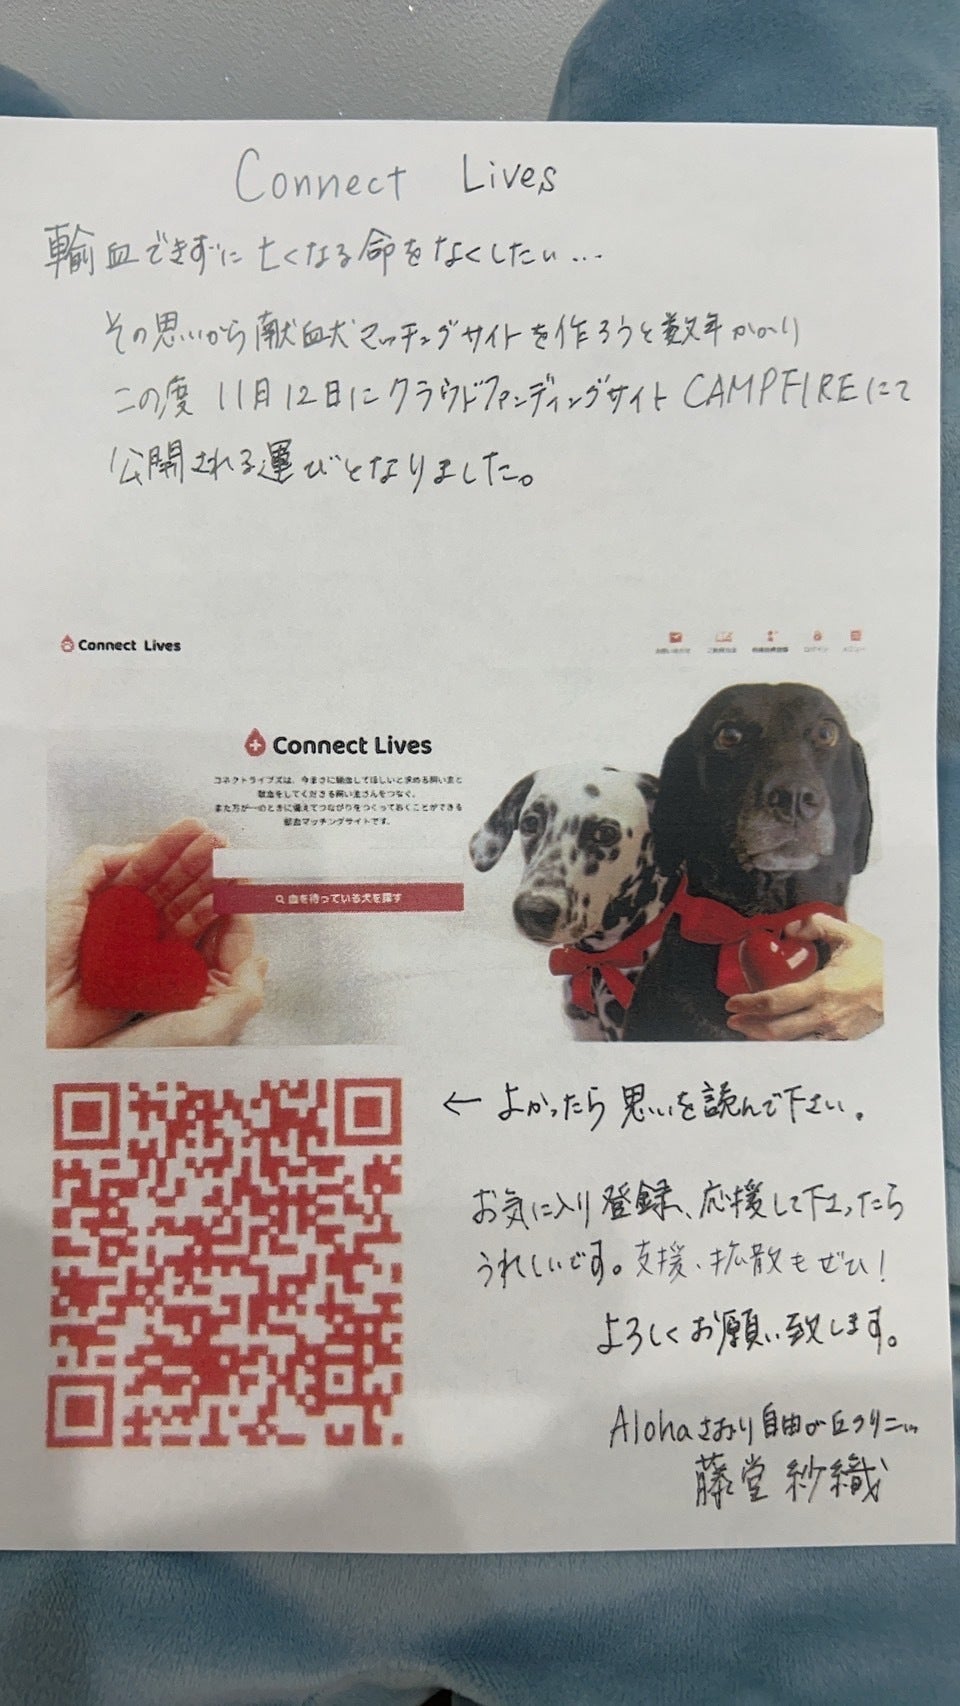 Connect Lives
輸血できずに亡くなる命をなくしたい…
その思いから献血犬マッチングサイトを作ろうと数年かかり
この度 11月12日にクラウドファンディングサイト CAMPFIREにて
公開される運びとなりました。
Connect Lives
お問い合わせ ログイン メニュー
Connect Lives
コネクトライブズは、今まさに輸血してほしいと求める飼い主と
献血をしてくださる飼い主さんをつなぐ、
また万が一のときに備えてつながりをつくっておくことができる
献血マッチングサイトです。
血を待っている犬を探す
← よかったら思いを読んで下さい。
お気に入り登録、応援して下さったら
うれしいです。支援、拡散もぜひ!
よろしくお願い致します。
Alohaさおり自由が丘クリニック
藤堂 紗織